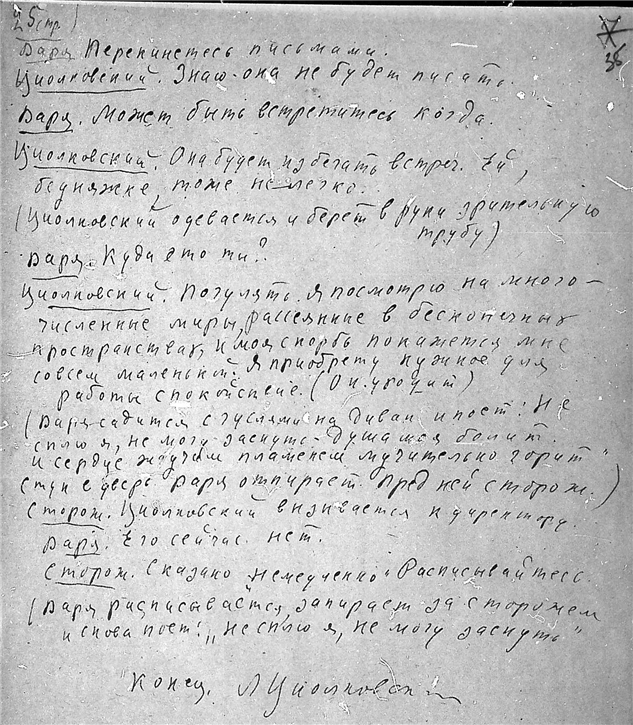 5 стр.)
38
Варя. Перекинетесь письмами.
Циолковский. Знаю - она не будет писать.
Варя. Может быть встретитесь когда.
Циолковский. Она будет избегать встреч. Ей,
бедняжке, тоже не легко.
(Циолковский одевается и берет в руки зрительную
трубу)
Варя. Куда это ты?
Циолковский. Погулять. Я посмотрю на много-
численные миры, рассеянные в бесконечных
пространствах, и моя скорбь покажется мне
совсем маленькой. Я приобрету нужное для
работы спокойствие. (Он уходит)
(Варя садится с гуслями на диван и поет: Не
сплю я, не могу заснуть - душа моя болит.
и сердце жгучим пламенем мучительно горит"
Стук в дверь. Варя отпирает. Пред ней сторож.)
Сторож. Циолковский вызывается к директору.
Варя. Его сейчас нет.
Сторож. Сказано "немедленно" Расписывайтесь.
(Варя расписывается, запирает за сторожем
и снова поет: „Не сплю я, не могу заснуть"
Конец. Л Циолковск